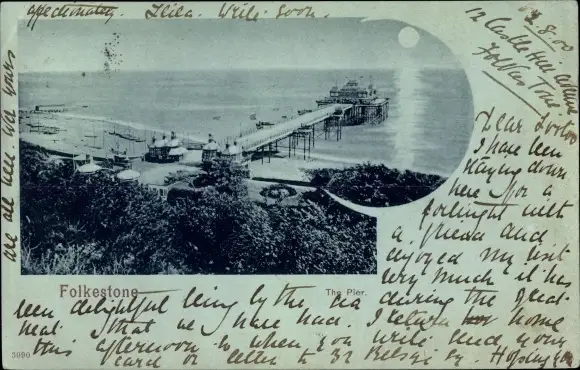 12 Castle Hill Avenue
Folkestone
2.8.00
Dear
I have been
staying down
here for a
fortnight with
a friend and
enjoyed my visit
very much it has
been delightful being by the sea during the great
heat that we have had. I return home
this afternoon so when you write send your
card or letter to 32
are all well. Was yours
affectionately. Write soon.
Folkestone
The Pier.
3990